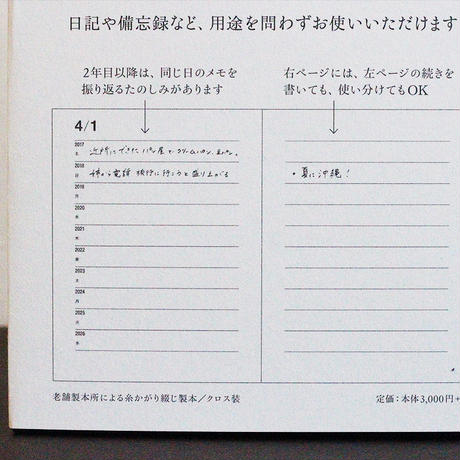 日記や備忘録など、用途を問わずお使いいただけます
2年目以降は、同じ日のメモを
振り返るたのしみがあります
右ページには、左ページの続きを
書いても、使い分けてもOK
4/1
2017
土
近所にできたパン屋でクリームパン、
2018
日
姉から電話 旅行に行こうと盛り上がる
・夏に沖縄!
2019
月
2020
水
2021
木
2022
金
2023
土
2024
月
2025
火
2026
水
老舗製本所による糸かがり綴じ製本／クロス装
定価：本体3,000円+